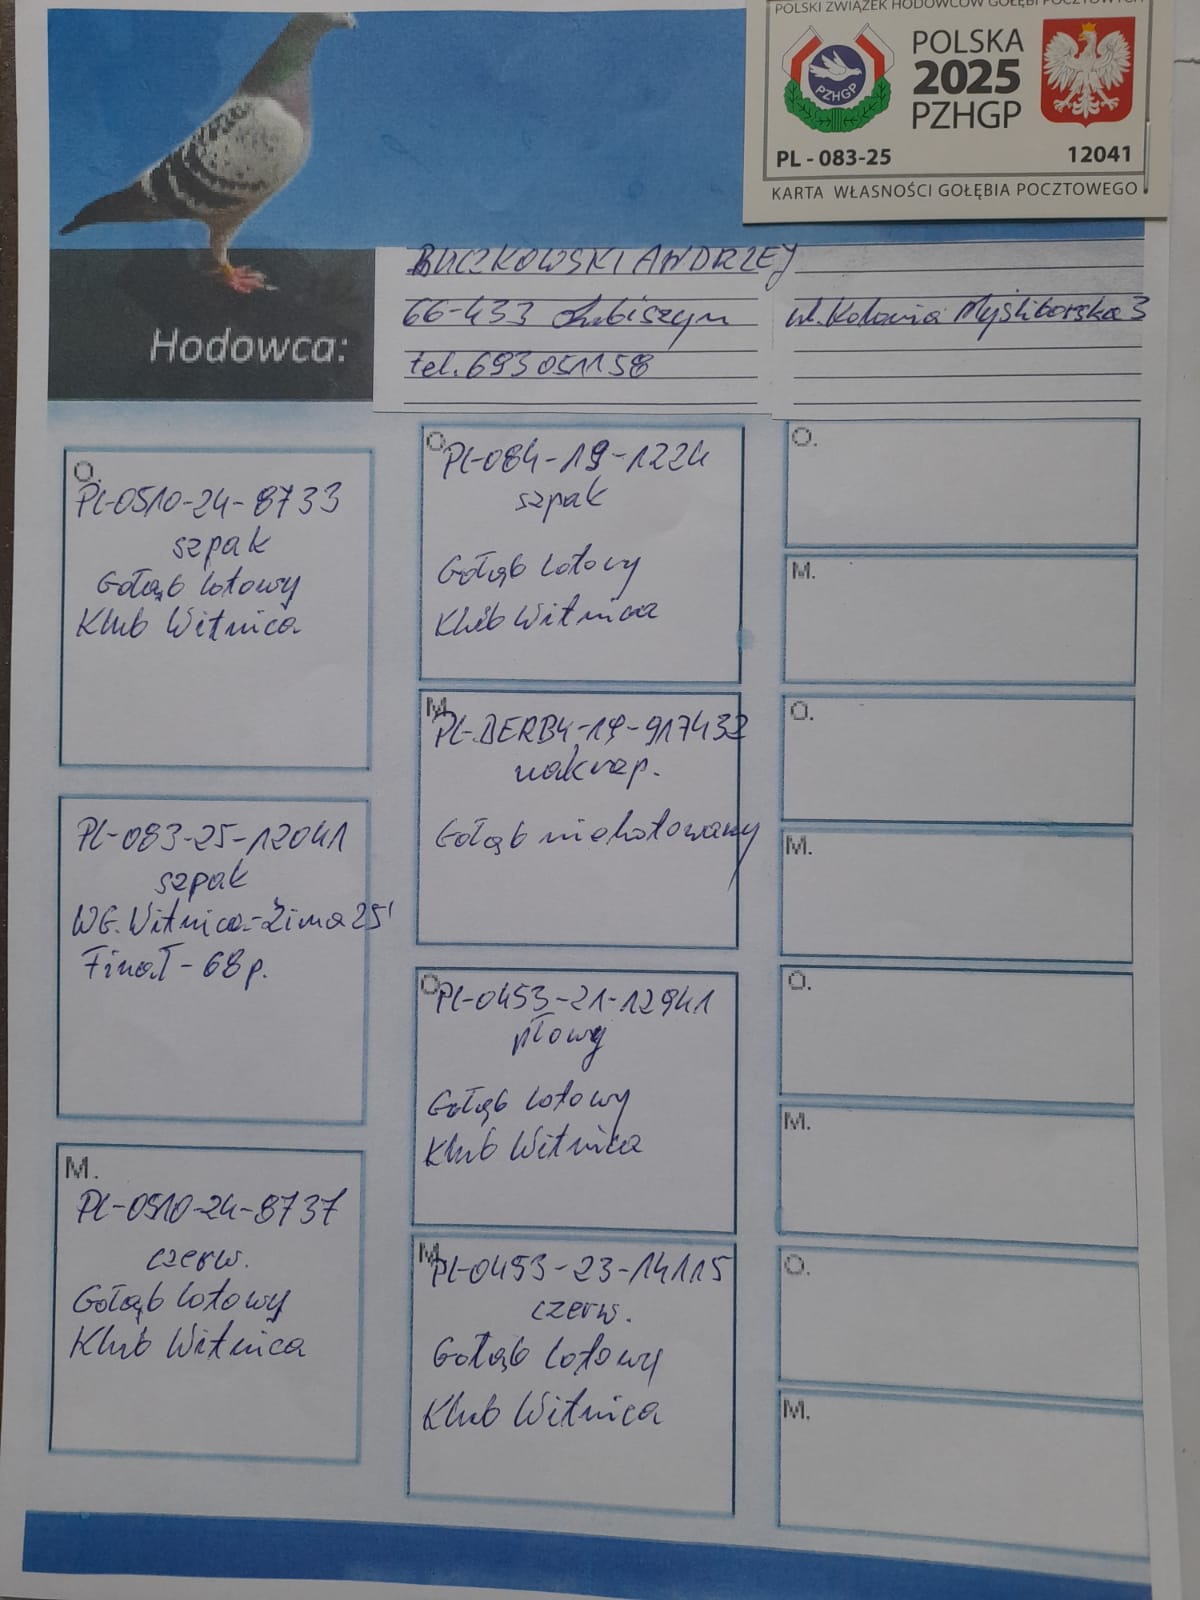 POLSKI ZWIĄZEK HODOWCÓW GOŁĘBI POCZTOWYCH
PZHGP
POLSKA
2025
PZHGP
PL - 083-25 12041
KARTA WŁASNOŚCI GOŁĘBIA POCZTOWEGO
Hodowca:
BUCZKOWSKI ANDRZEJ
66-433 Lubiszyn ul. Kolonia Myśliborska 3
tel. 693051158
O.
PL-0510-24-8733
szpak
Gołąb lotowy
Klub Witnica
PL-083-25-12041
szpak
WG. Witnica-Zima 25'
Finał - 68 p.
M.
PL-0510-24-8737
czerw.
Gołąb lotowy
Klub Witnica
O.
PL-084-19-1224
szpak
Gołąb lotowy
Klub Witnica
M.
PL-DERBY-19-917432
nakrap.
Gołąb nielotowany
O.
PL-0453-21-12941
płowy
Gołąb lotowy
Klub Witnica
M.
PL-0453-23-14115
czerw.
Gołąb lotowy
Klub Witnica
O.
M.
O.
M.
O.
M.
O.
M.